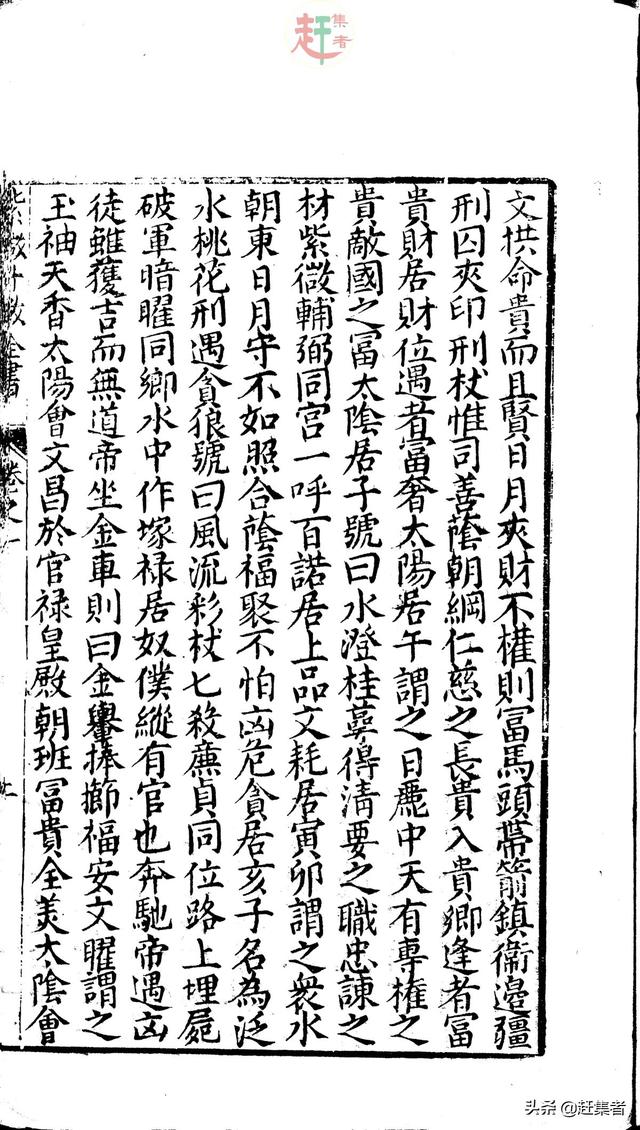 赶集者
文拱命貴而且賢日月夾財不權則冨馬頭帶箭鎮衛邊疆
刑囚夾印刑杖惟司善蔭朝綱仁慈之長貴入貴鄉逢者冨
貴財居財位遇者富奢太陽居午謂之日麗中天有專權之
貴敵國之冨太陰居子號曰水澄桂蕚得清要之職忠諫之
材紫微輔弼同宫一呼百諾居上品文耗居寅卯謂之衆水
朝東日月守不如照合蔭福聚不怕凶危貪居亥子名為泛
水桃花刑遇貪狼號曰風流彩杖七殺亷貞同位路上埋屍
破軍暗曜同鄉水中作塚禄居奴僕縱有官也奔馳帝遇凶
徒雖獲吉而無道帝坐金車則曰金轝捧櫛福安文曜謂之
玉袖天香太陽會文昌於官禄皇殿朝班冨貴全美太陰會
紫微斗數全書 卷之一
头条 @赶集者